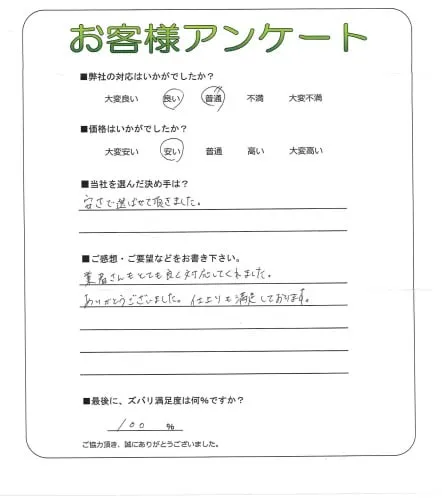 お客様アンケート
■弊社の対応はいかがでしたか?
大変良い 良い 普通 不満 大変不満
■価格はいかがでしたか?
大変安い 安い 普通 高い 大変高い
■当社を選んだ決め手は?
安さで選ばせて頂きました。
■ご感想・ご要望などをお書き下さい。
業者さんもとても良く対応してくれました。
ありがとうございました。仕上りも満足しております。
■最後に、ズバリ満足度は何%ですか?
100 %
ご協力頂き、誠にありがとうございました。